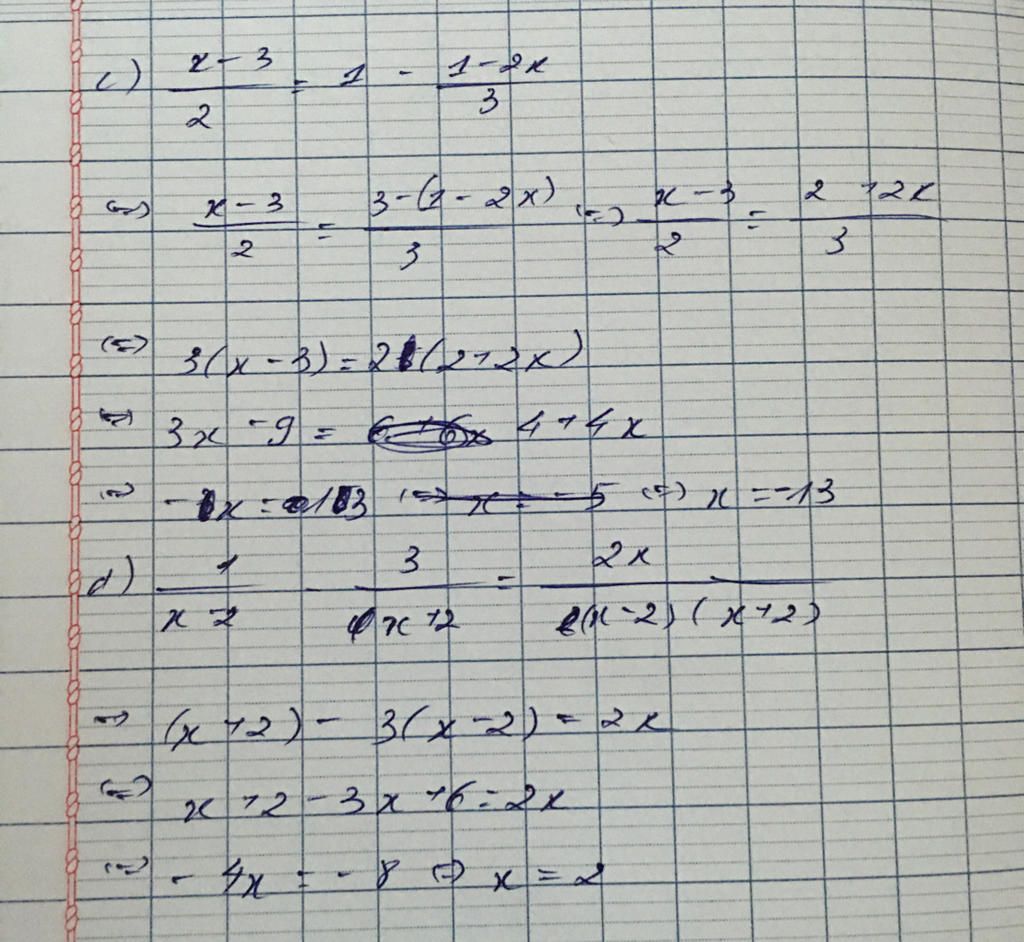 c) (x-3)/2 = 1 - (1-2x)/3
(=) (x-3)/2 = (3-(1-2x))/3 (=) (x-3)/2 = (2+2x)/3
(=) 3(x-3) = 2(2+2x)
(=) 3x-9 = 4+4x
(=) -x = 13 (=) x = -13
d) 1/(x-2) - 3/(x+2) = 2x/((x-2)(x+2))
=) (x+2) - 3(x-2) = 2x
(=) x+2-3x+6 = 2x
(=) -4x = -8 (=) x = 2